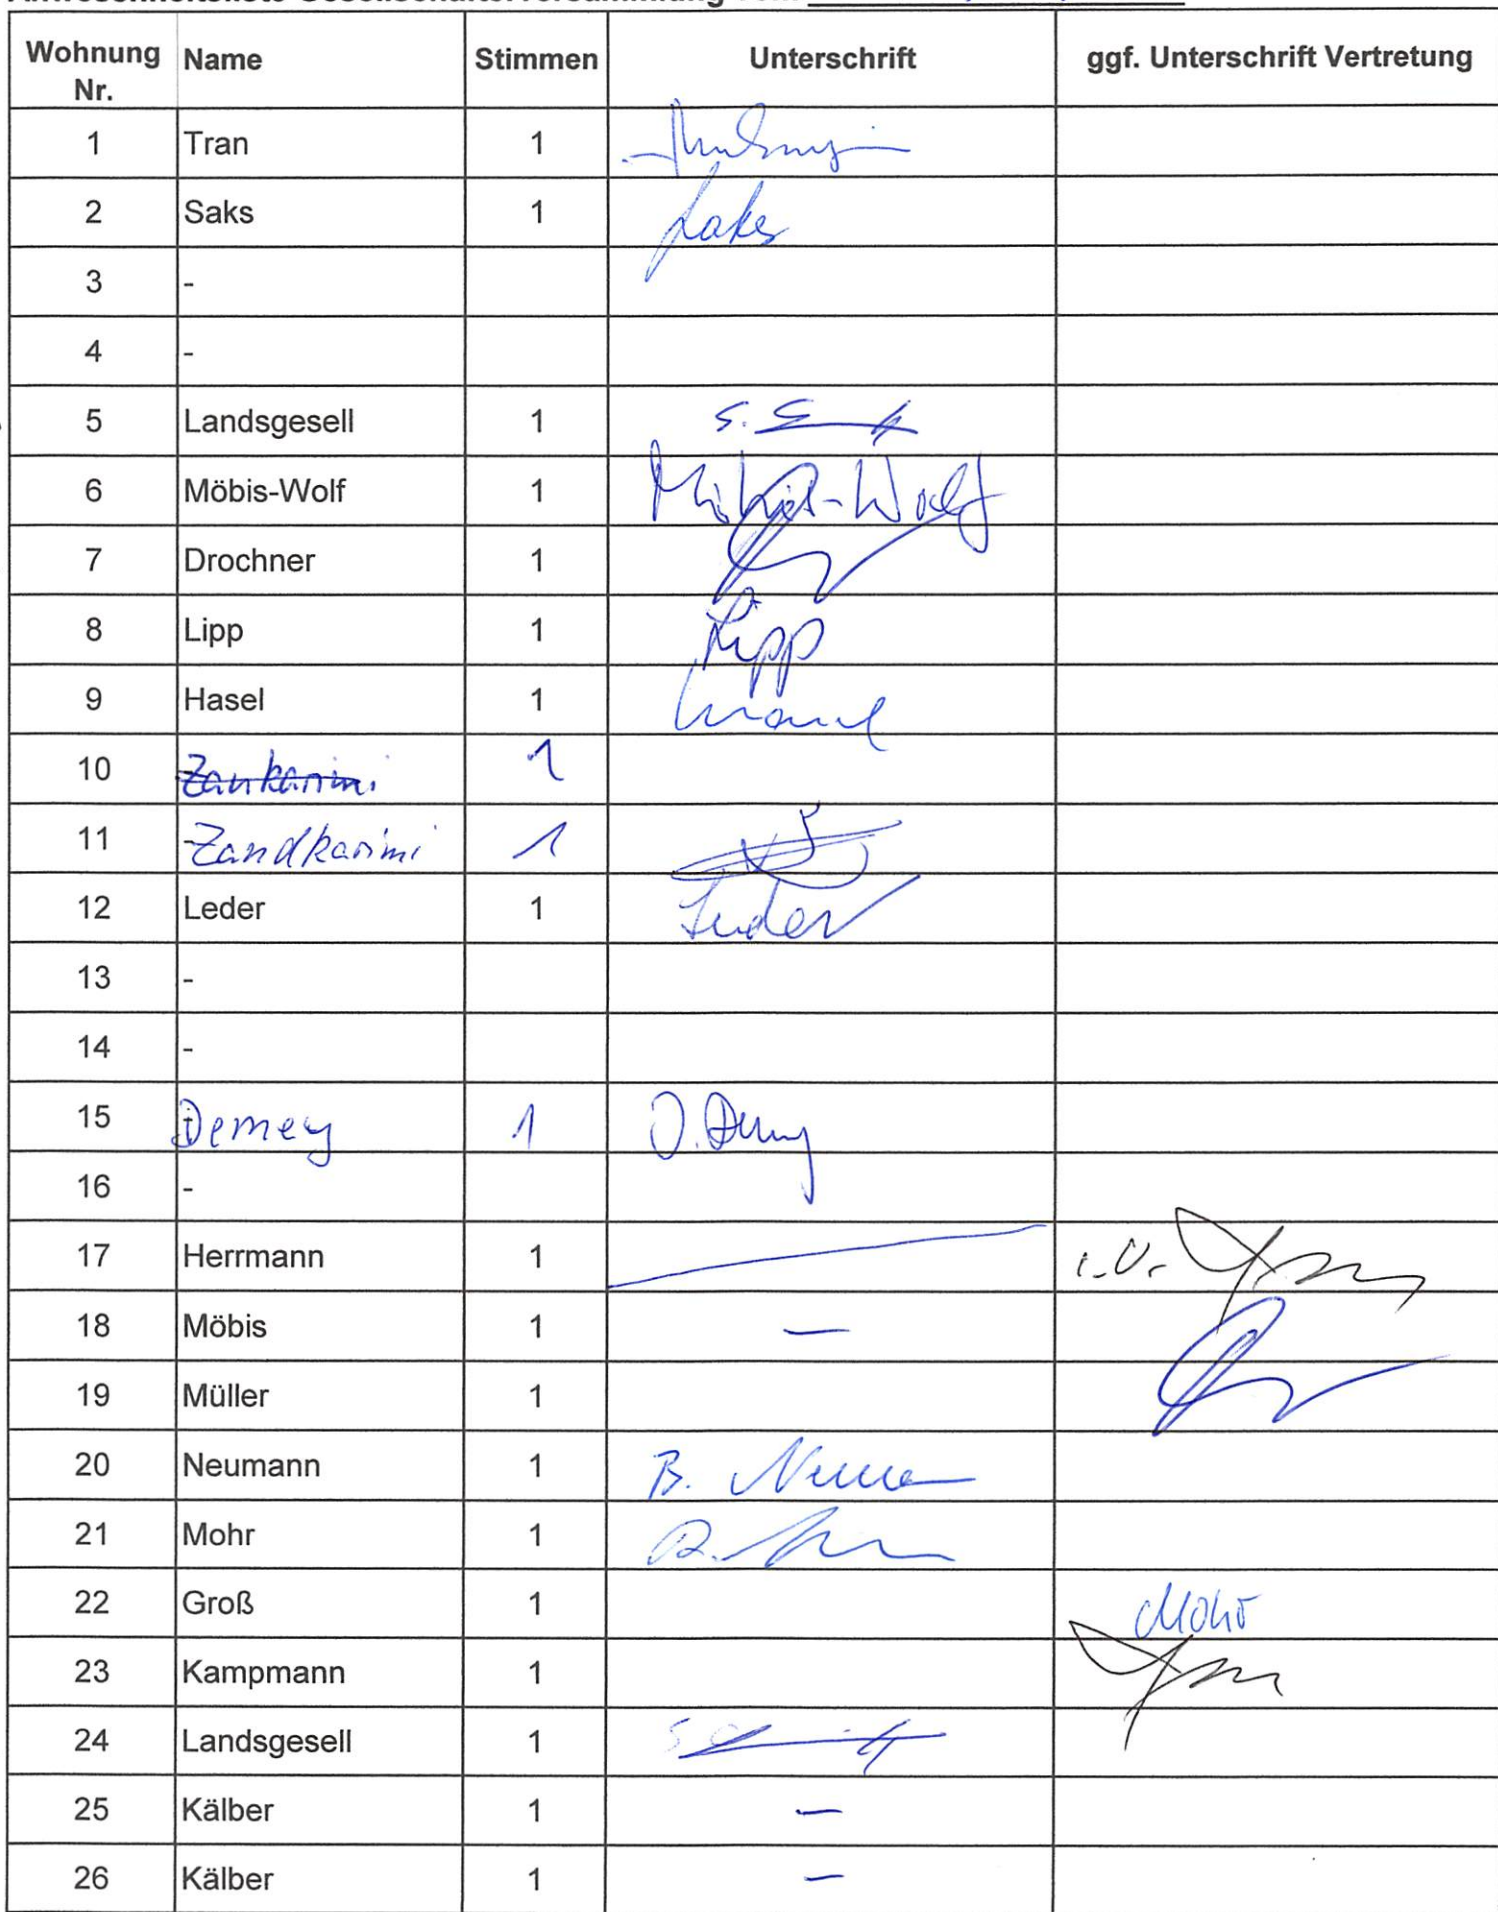 Anwesenheitsliste Gesellschafterversammlung vom
Wohnung Nr. Name Stimmen Unterschrift ggf. Unterschrift Vertretung
1 Tran 1
2 Saks 1 Saks
3 -
4 -
5 Landsgesell 1 S.
6 Möbis-Wolf 1 Möbis-Wolf
7 Drochner 1
8 Lipp 1 Lipp
9 Hasel 1
10 Zankarimi 1
11 - Zandkarimi 1
12 Leder 1 Leder
13 -
14 -
15 Demey 1 O. Demy
16 -
17 Herrmann 1 i.V.
18 Möbis 1 —
19 Müller 1
20 Neumann 1 B. Neumann
21 Mohr 1 R.
22 Groß 1 Mohr
23 Kampmann 1
24 Landsgesell 1 S.
25 Kälber 1 —
26 Kälber 1 —